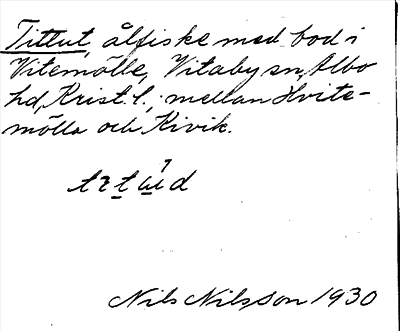 Tittut, ålfiske med bod i
Vitemölle, Vitaby sn, Albo
hd, Krist. l.; mellan Hvite-
mölla och Kivik.
Nils Nilsson 1930